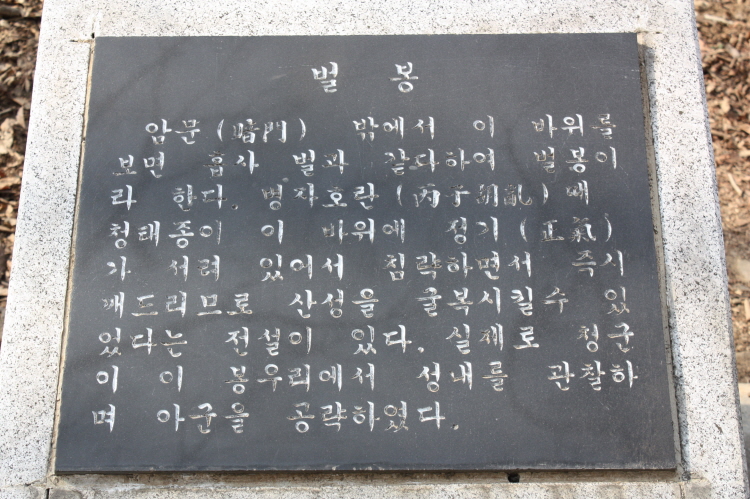 벌 봉
암문(暗門) 밖에서 이 바위를
보면 흡사 벌과 같다하여 벌봉이
라 한다. 병자호란(丙子胡亂)때
청태종이 이 바위에 정기(正氣)
가 서려 있어서 침략하면서 즉시
깨드리므로 산성을 굴복시킬수 있
었다는 전설이 있다. 실제로 청군
이 이 봉우리에서 성내를 관찰하
며 아군을 공략하였다.